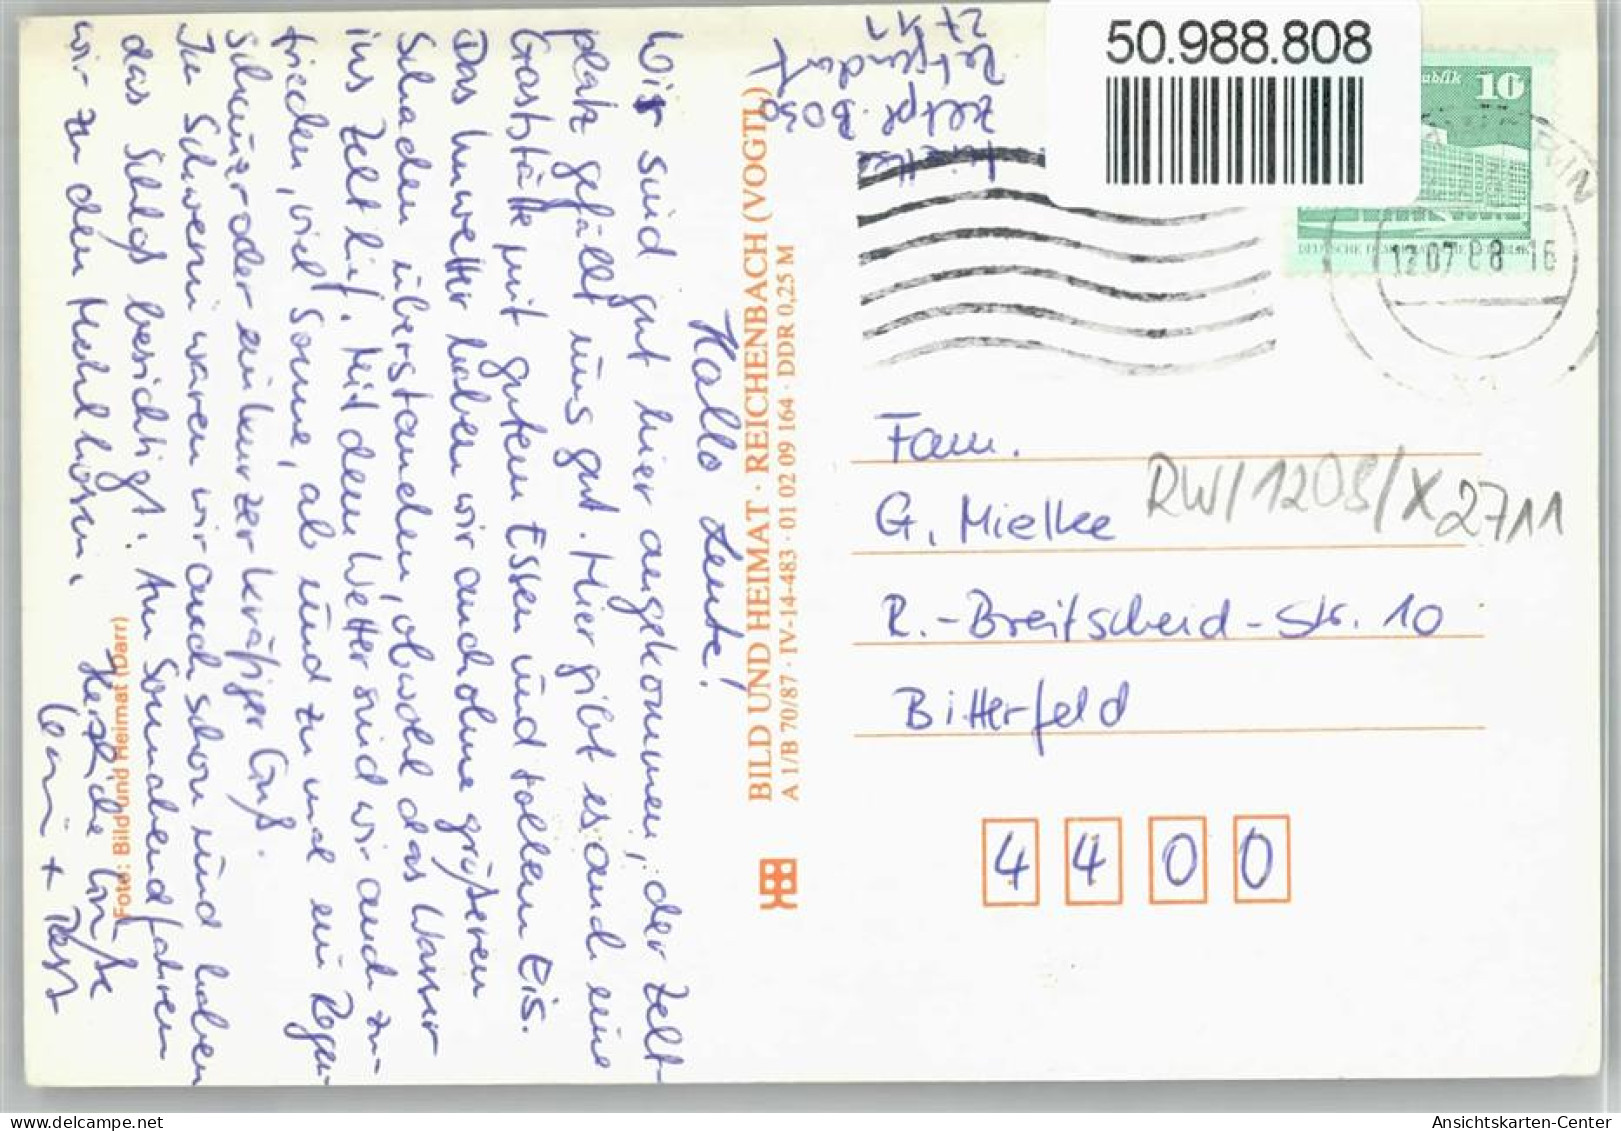 50.988.808
ublik 10
12.07.88-16
Mielke
Zeltpl. B 030
Retgendorf
27 11
Hallo Leute!
Wir sind gut hier angekommen, der Zelt-
platz gefällt uns gut. Hier gibt es auch eine
Gaststätte mit gutem Essen und tollem Eis.
Das Unwetter haben wir auch ohne größeren
Schaden überstanden, obwohl das Wasser
ins Zelt lief. Mit dem Wetter sind wir auch zu-
frieden, viel Sonne, ab und zu mal ein Regen-
schauer oder ein kurzer kräftiger Guß.
In Schwerin waren wir auch schon und haben
das Schloß besichtigt. Am Sonnabend fahren
wir zu den Mühlhosern.
Herzliche Grüße
BILD UND HEIMAT · REICHENBACH (VOGTL)
A 1/B 70/87 · IV-14-483 · 01 02 09 164 · DDR 0,25 M
Foto: Bild und Heimat (Darr)
Fam.
G. Mielke
RW/1208/X2711
R.-Breitscheid-Str. 10
Bitterfeld
4 4 0 0
Ansichtskarten-Center